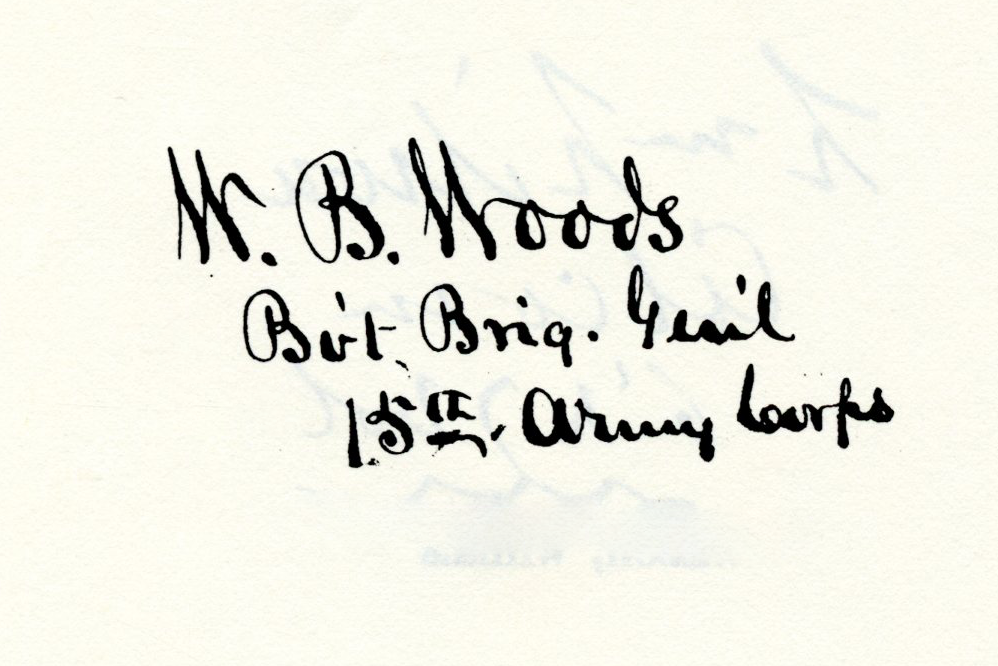 W. B. Woods
Bv't. Brig. Gen'l
15th. Army Corps